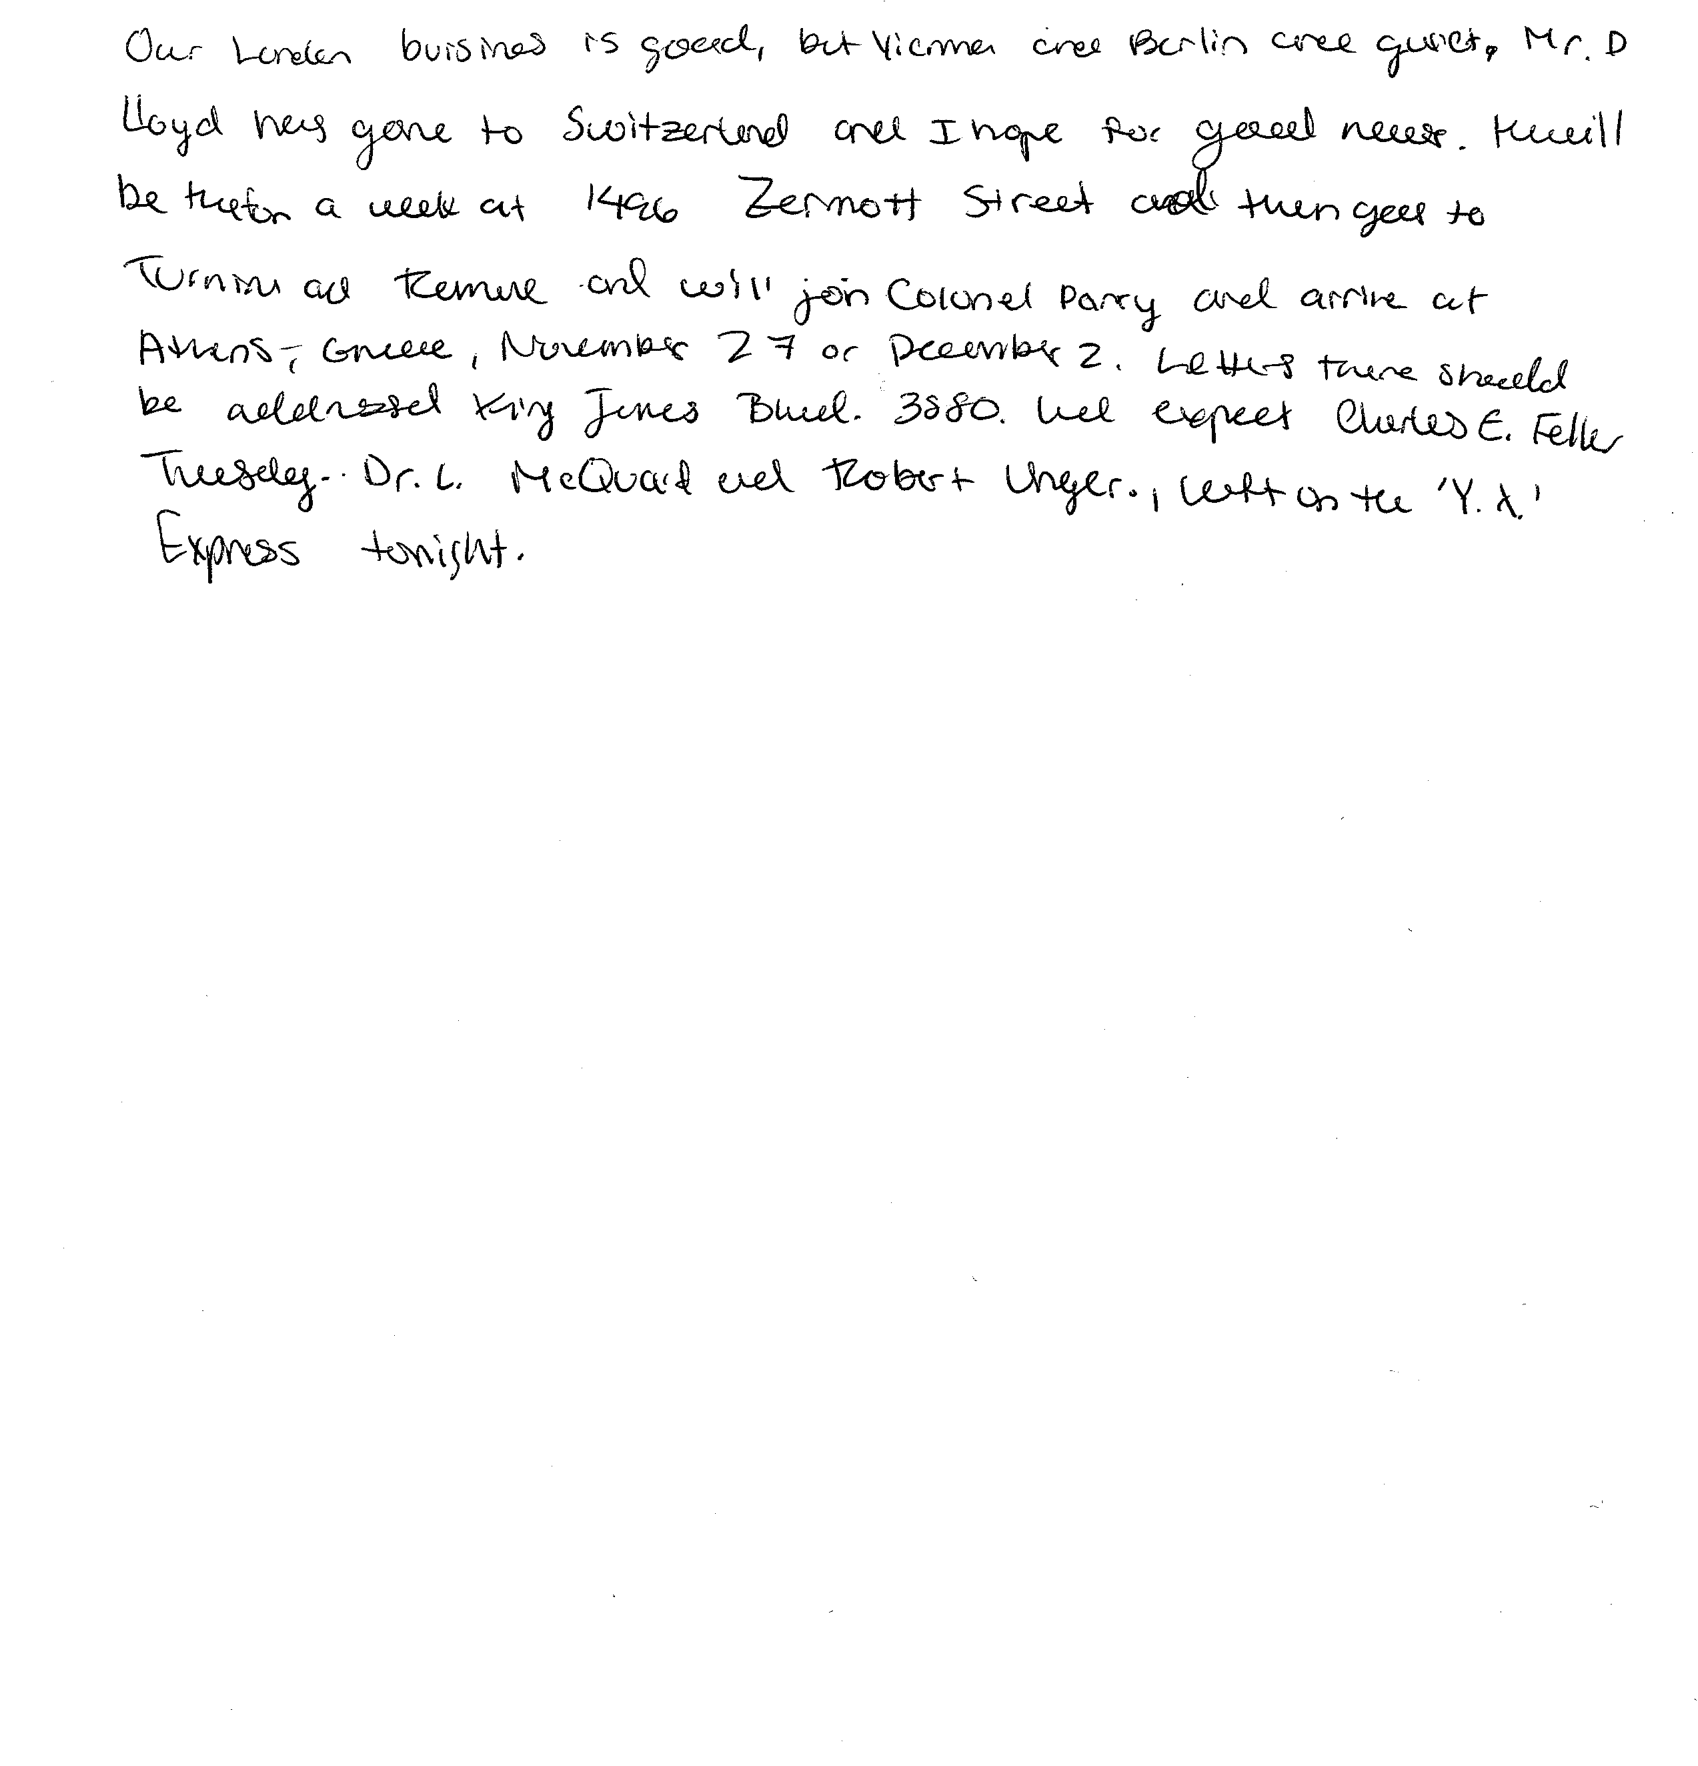 Our London buisines is good, but Vienna and Berlin are quiet. Mr. D
Lloyd has gone to Switzerland and I hope for good news. He will
be there for a week at 1496 Zermott Street and then goes to
Turin and Rome and will join Colonel Parry and arrive at
Athens, Greece, November 27 or December 2. Letters there should
be addressed King James Blvd. 3580. We expect Charles E. Fuller
Tuesday. Dr. L. McQuaid and Robert Unger., left on the 'Y.X.'
Express tonight.